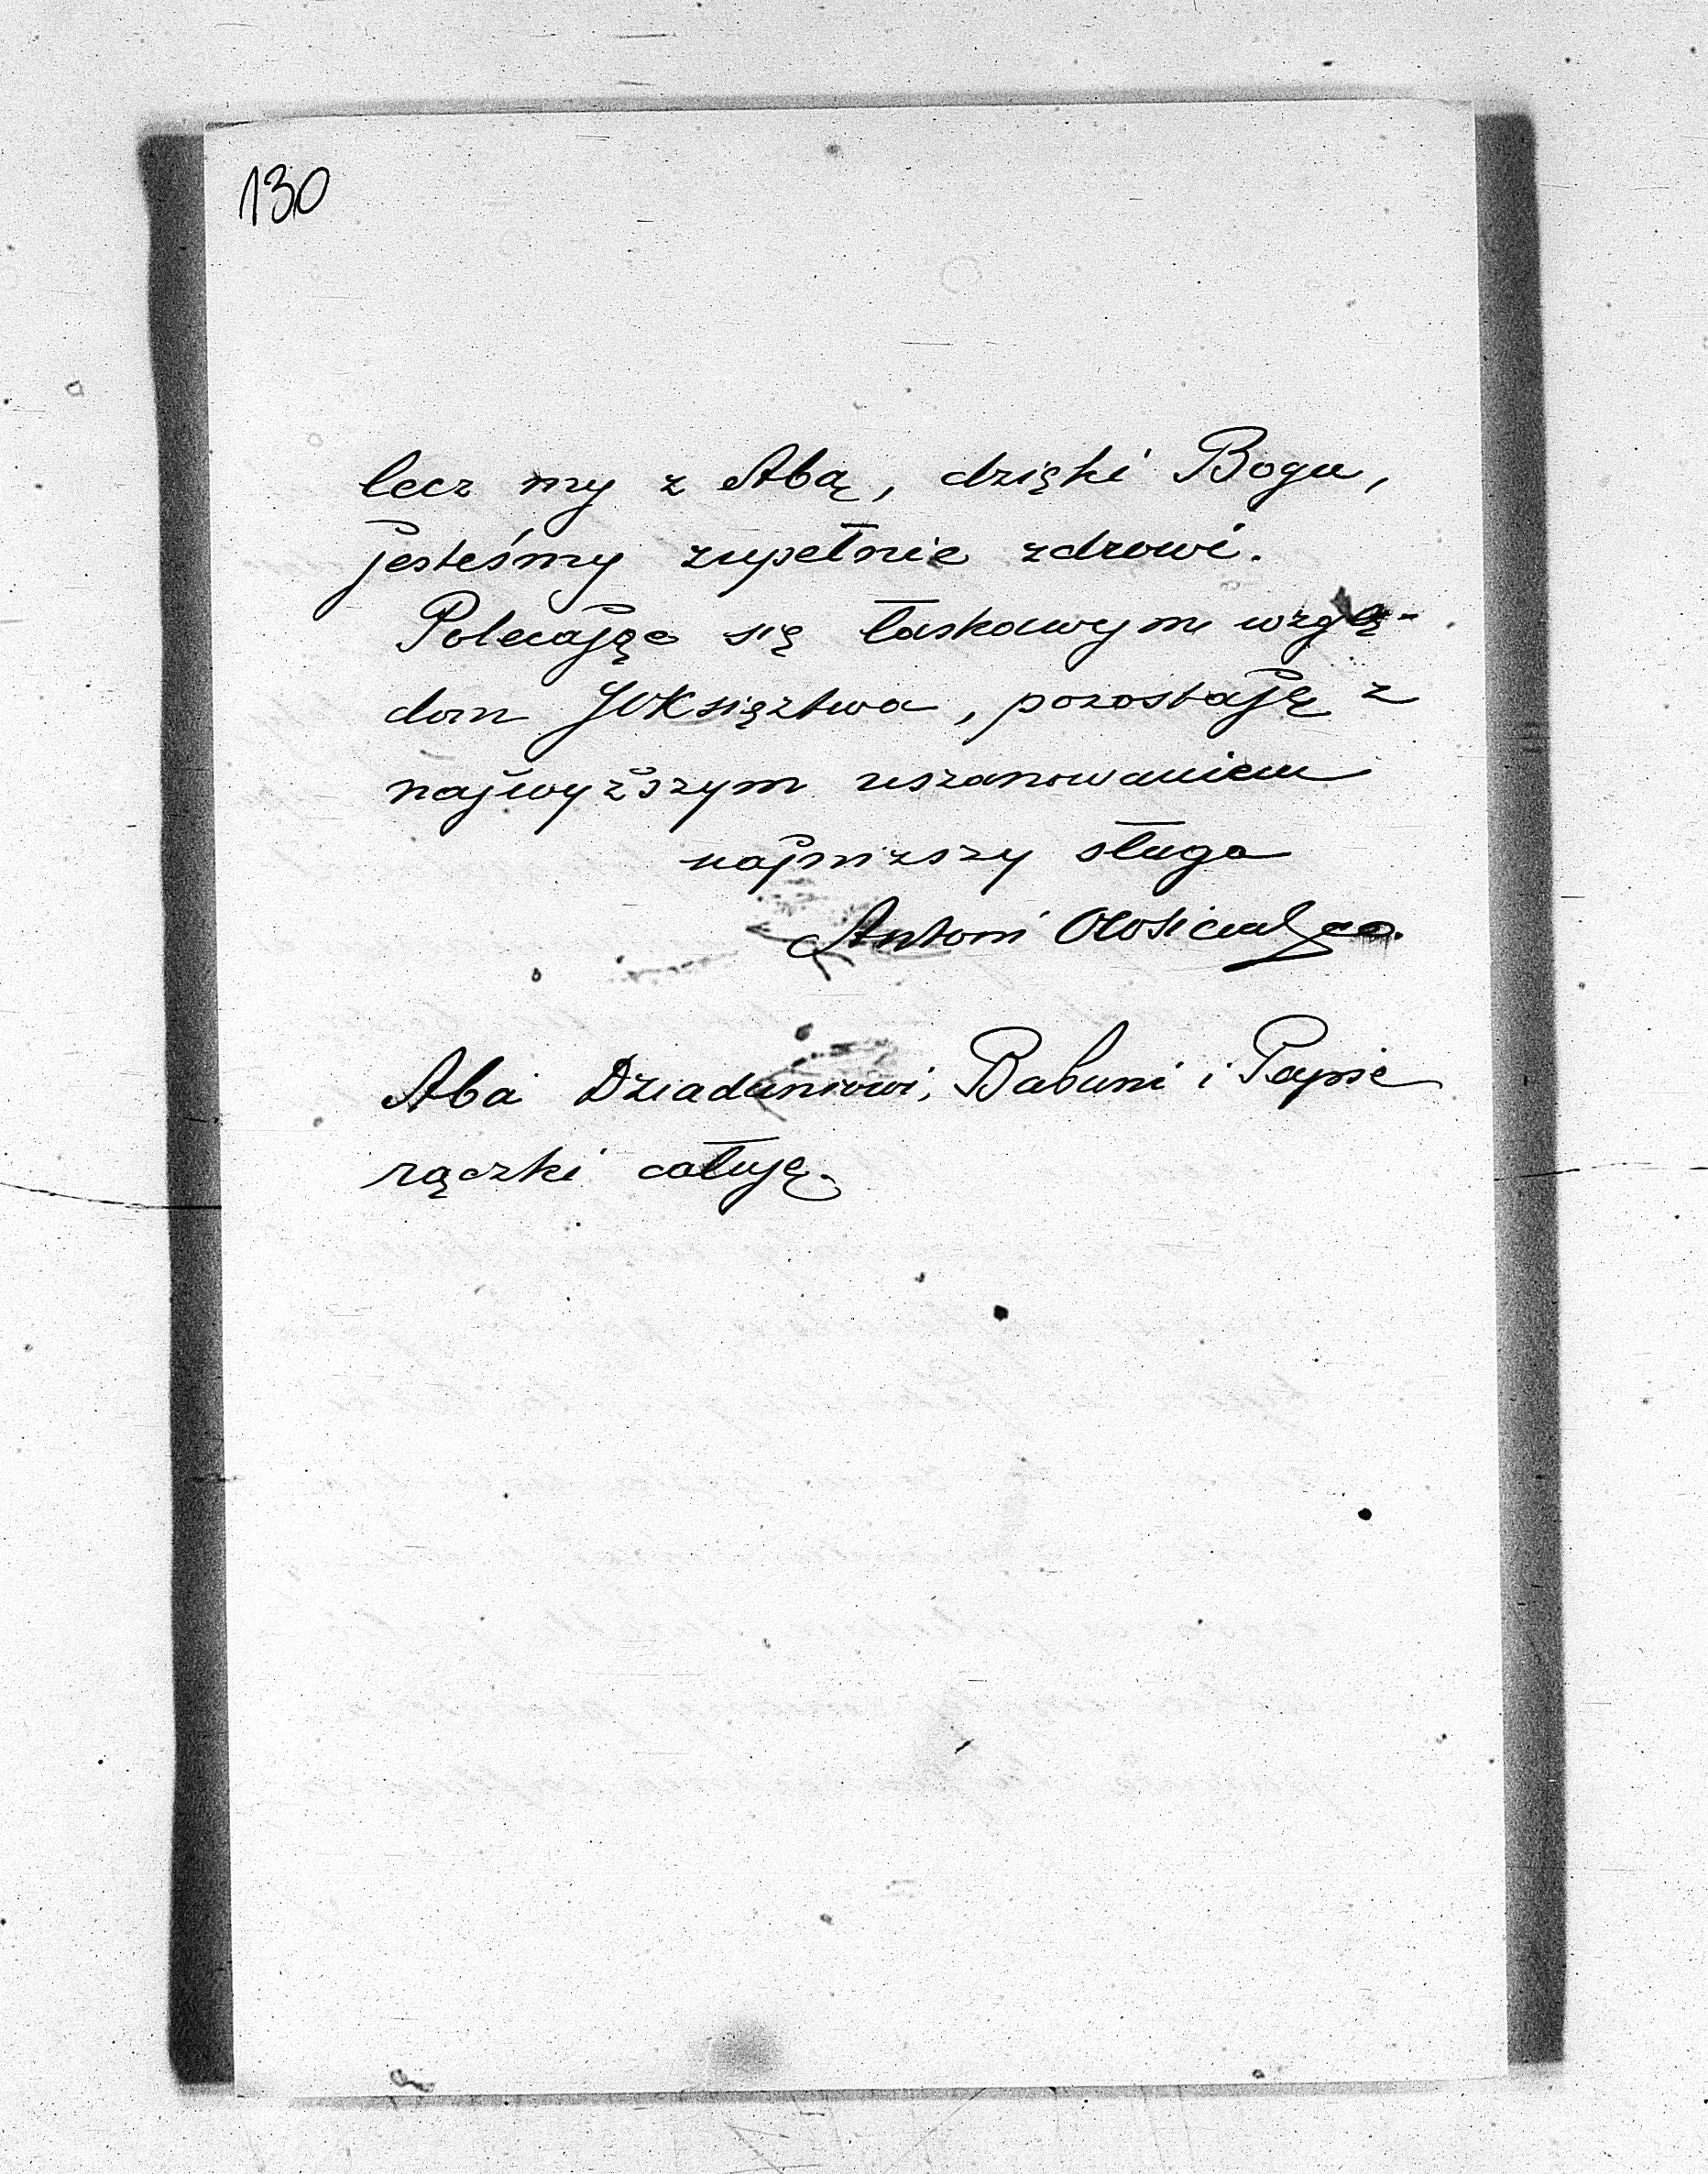 130
lecz my z Abą, dzięki Bogu,
jesteśmy zupełnie zdrowi.
Polecając się łaskawym wzglę-
dom JWKsięztwa, pozostaję z
najwyższym uszanowaniem
najniższy sługa
Antoni
Aba Dziaduniowi, Babuni i Papie
rączki całuję.